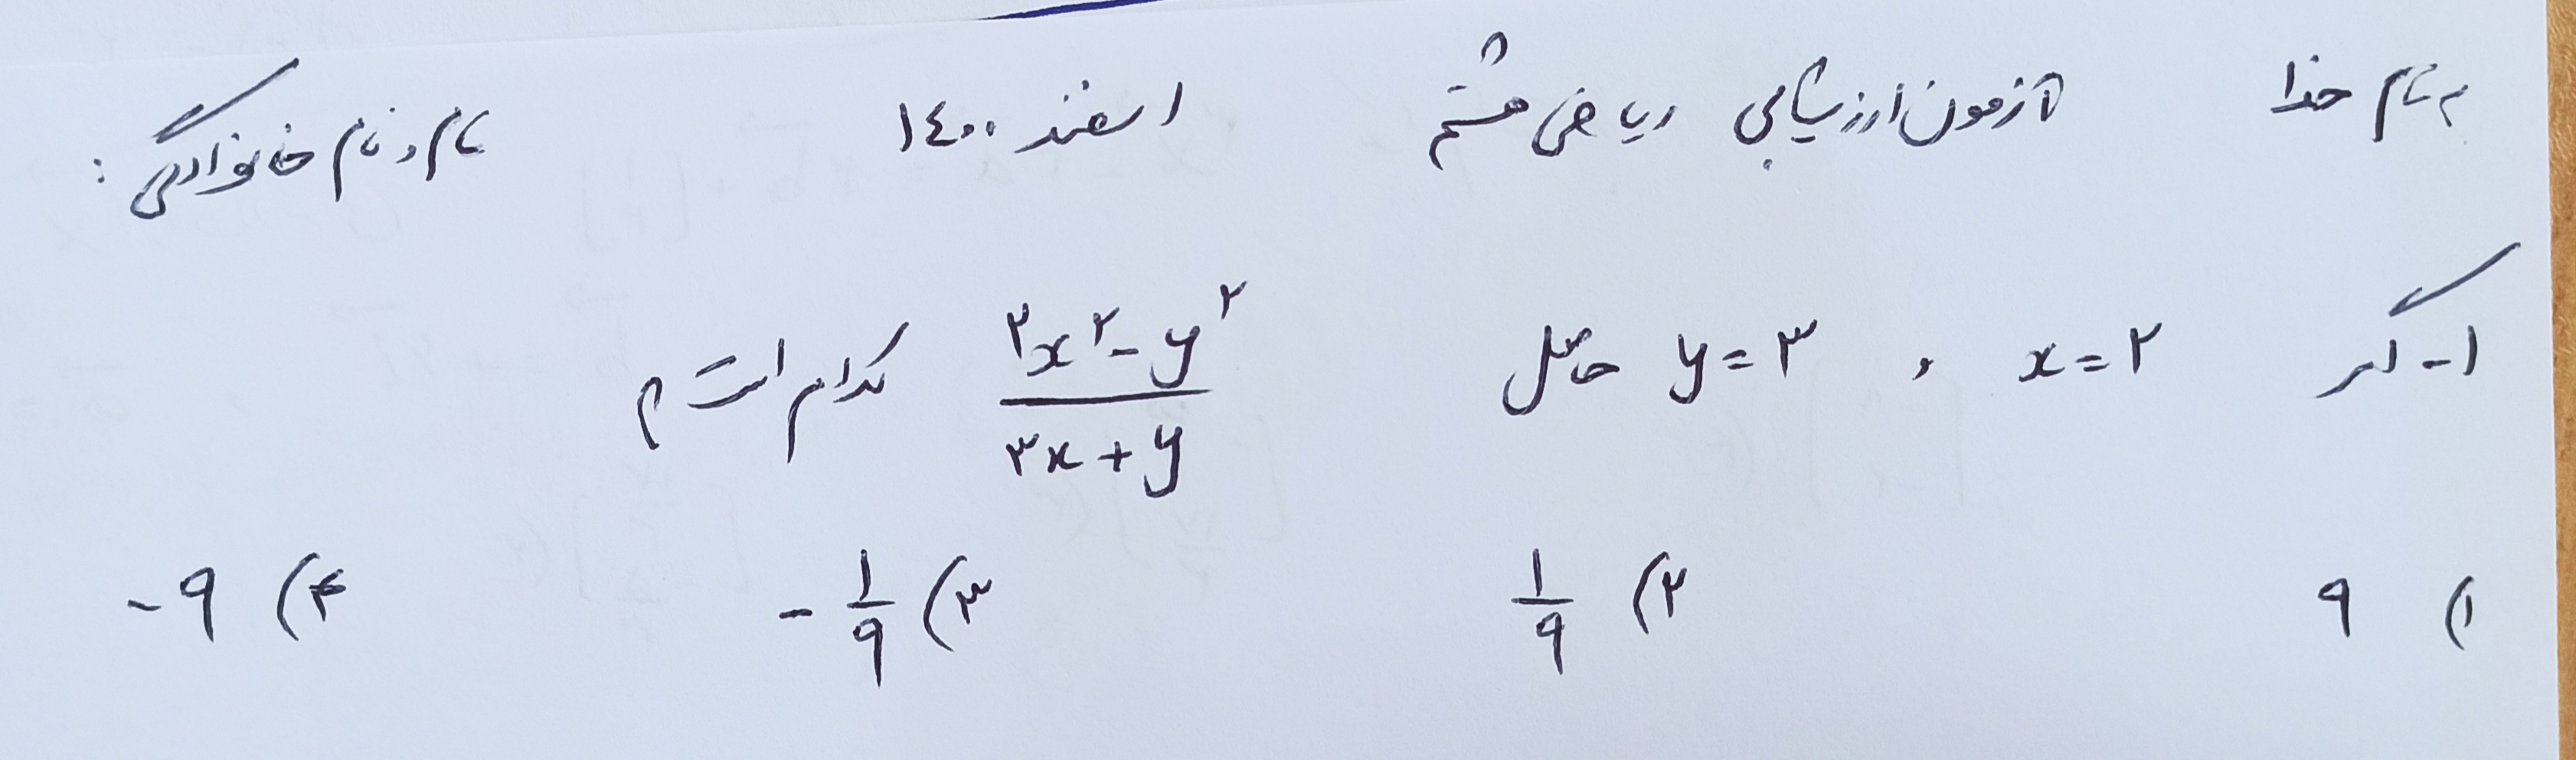 به نام خدا آزمون ارزشیابی ریاضی هشتم اسفند ۱۴۰۰ نام و نام خانوادگی:
۱- اگر x=۲ و y=۳ حاصل (۲x^۲-y^۲)/(۳x+y) کدام است؟
۱) ۹ ۲) ۱/۹ ۳) -۱/۹ ۴) -۹